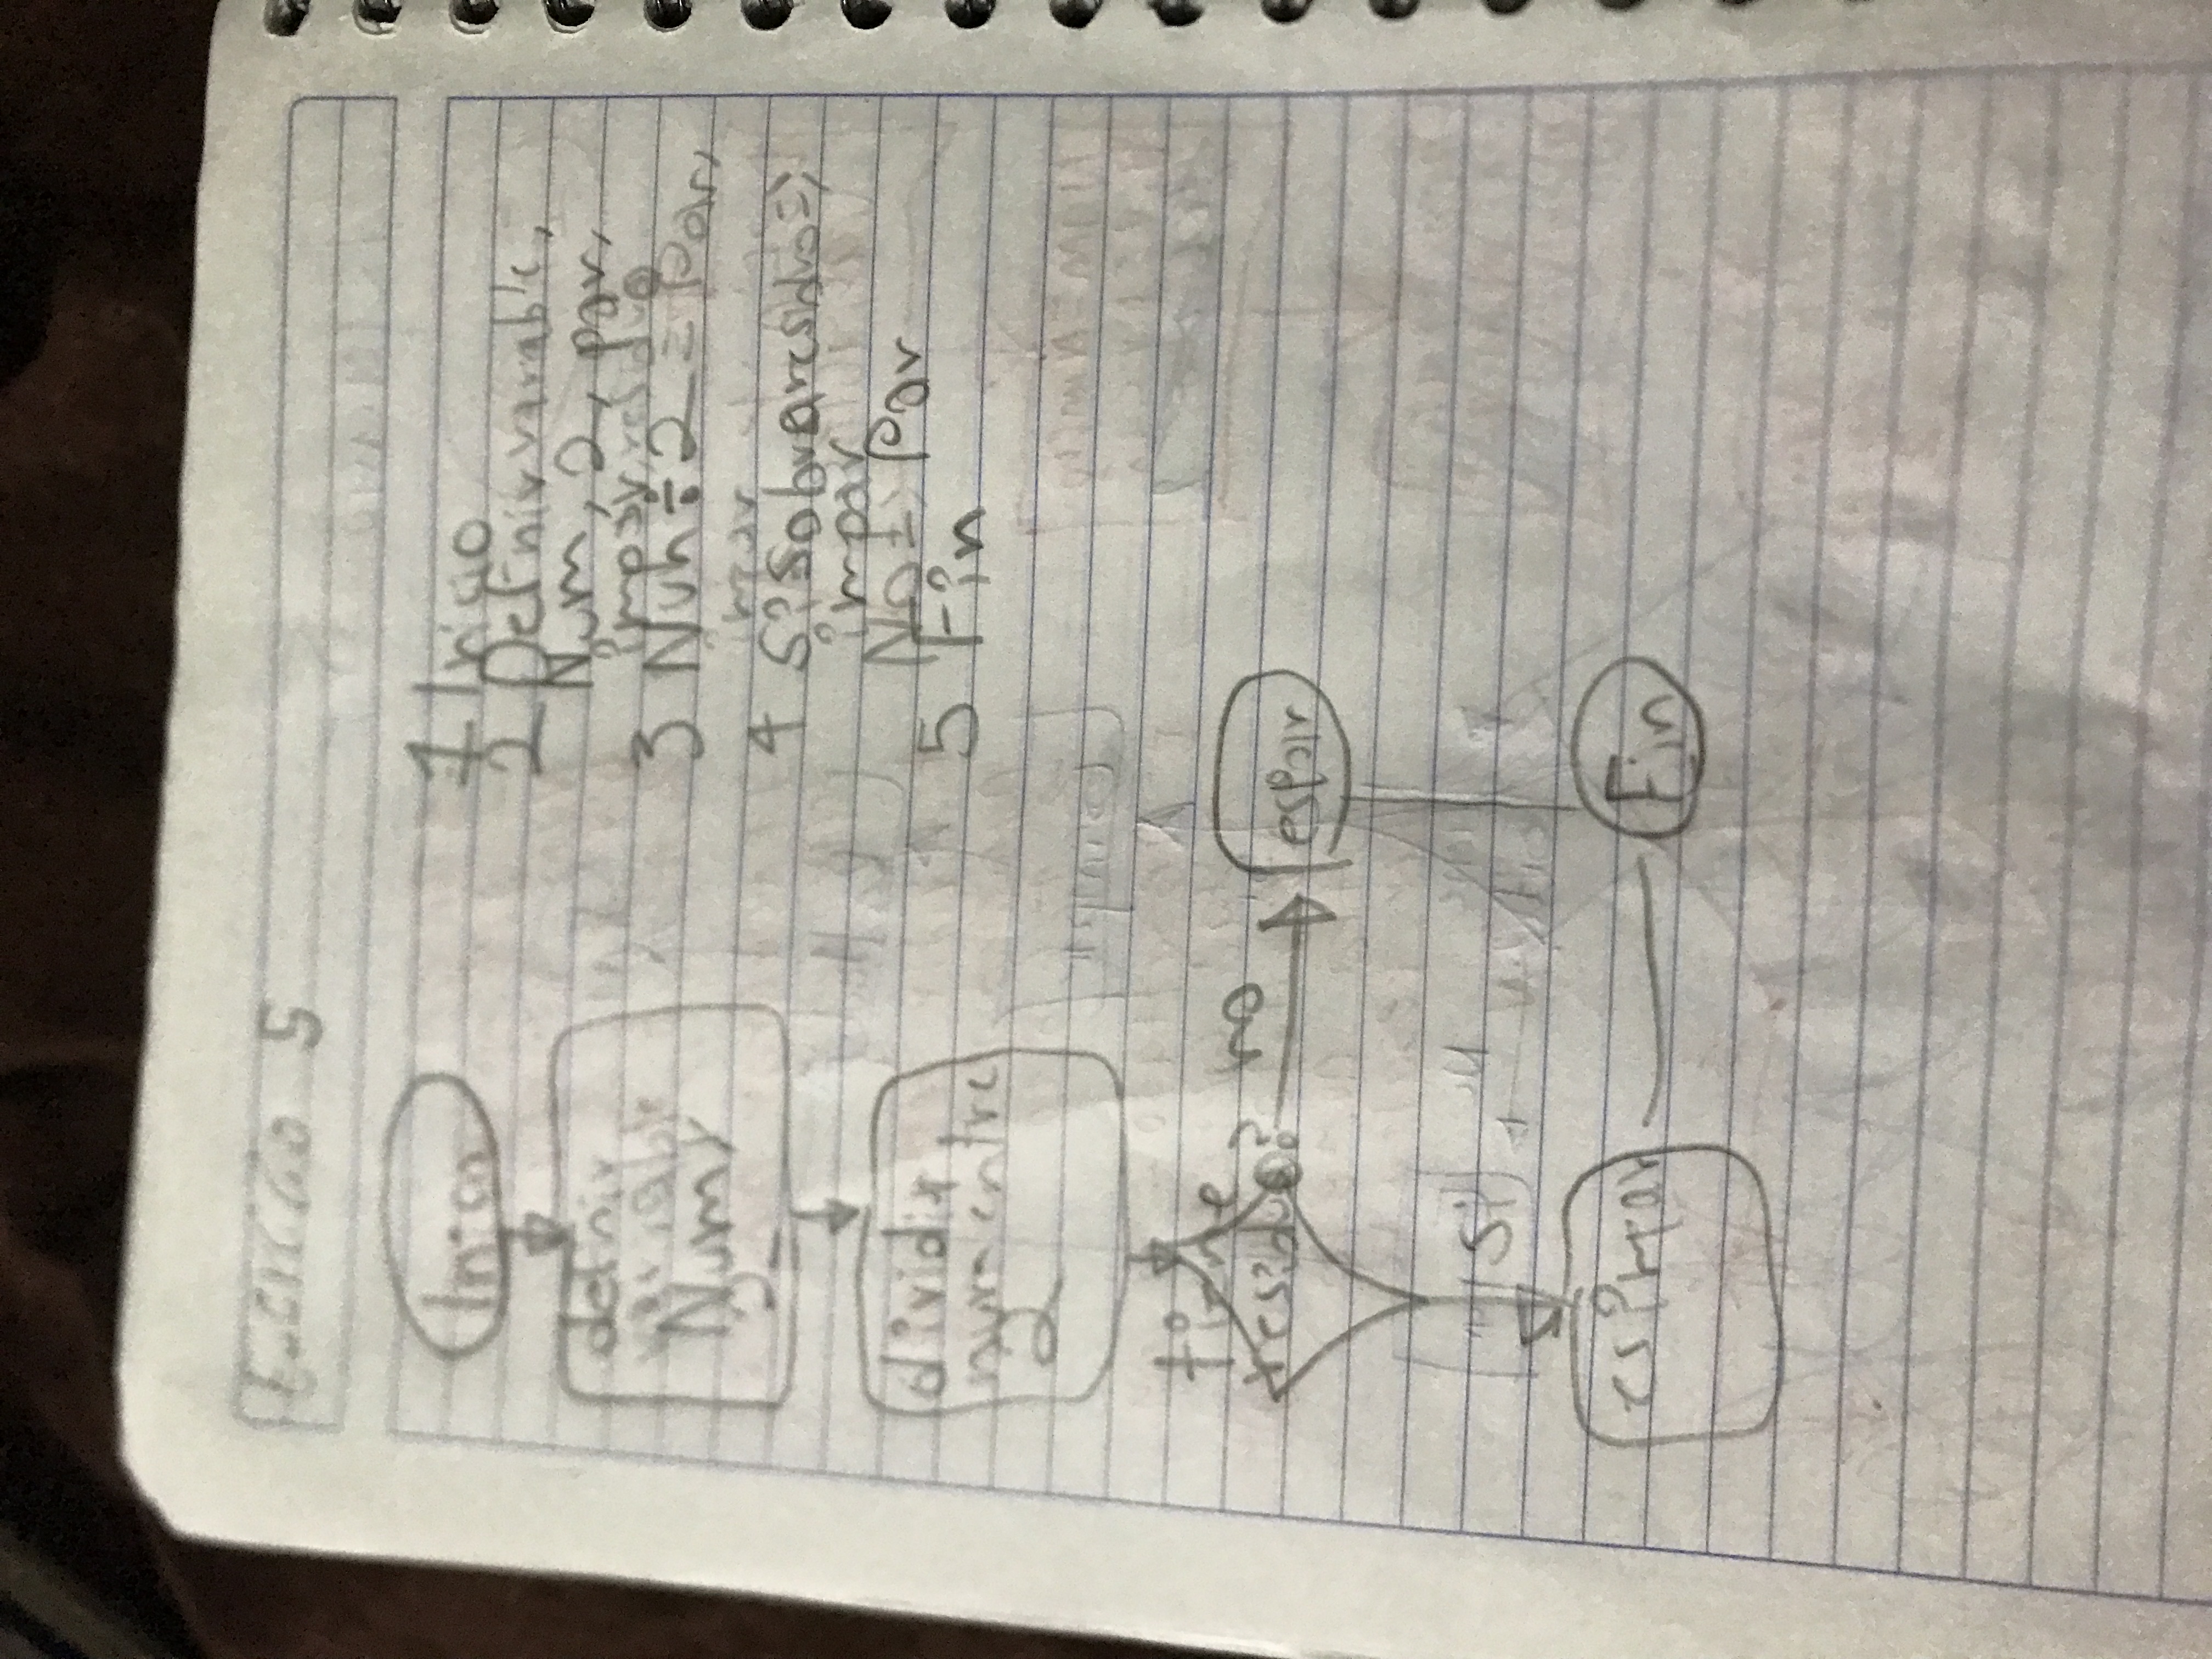 Ejercicio 5
1 Inicio
2 Definir variable,
Num, 2, par,
impar, residuo
3 Num ÷ 2 = par,
impar
4 Si sobra residuo =
impar
No = par
5 Fin
Inicio
definir
variable
Num,
2
dividir
num entre
2
tiene
residuo?
no
es par
Si
es impar
Fin